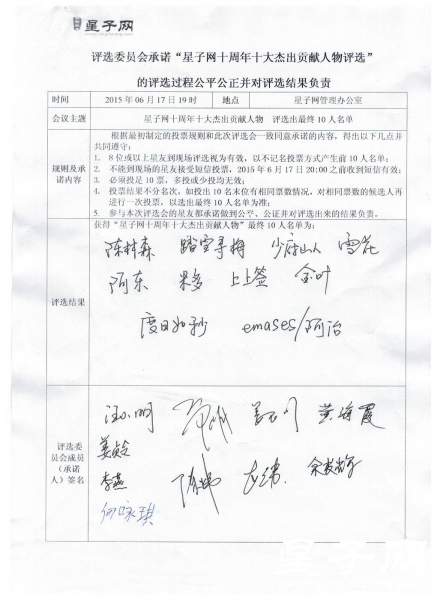 星子网
评选委员会承诺“星子网十周年十大杰出贡献人物评选”
的评选过程公平公正并对评选结果负责
时间 2015年06月17日19时 地点 星子网管理办公室
会议主题 星子网十周年十大杰出贡献人物 评选出最终10人名单
规则及承诺内容
根据最初制定的投票规则和此次评选会一致同意承诺的内容，得出以下几点并
共同遵守：
1. 8位或以上星友到现场评选视为有效，以不记名投票方式产生前10人名单；
2. 不能到现场的星友接受短信投票，2015年6月17日20:00之前收到短信有效；
3. 必须投足10票，多投或少投均无效；
4. 投票结果不分名次，如投出10名末位有相同票数情况，对相同票数的候选人再
进行一次投票，以选出最终10人名单为准；
5. 参与本次评选会的星友都承诺做到公平、公正并对评选出来的结果负责。
评选结果
获得“星子网十周年十大杰出贡献人物”最终10人名单为：
陈林森 踏雪寻梅 少府山人 雪花
阿东 果多 上上签 金叶
度日如秒 emases/阿治
评选委
员会成员
（承诺
人）签名
汪小明 黄海霞
姜贞
李燕
何咏琪
星子网